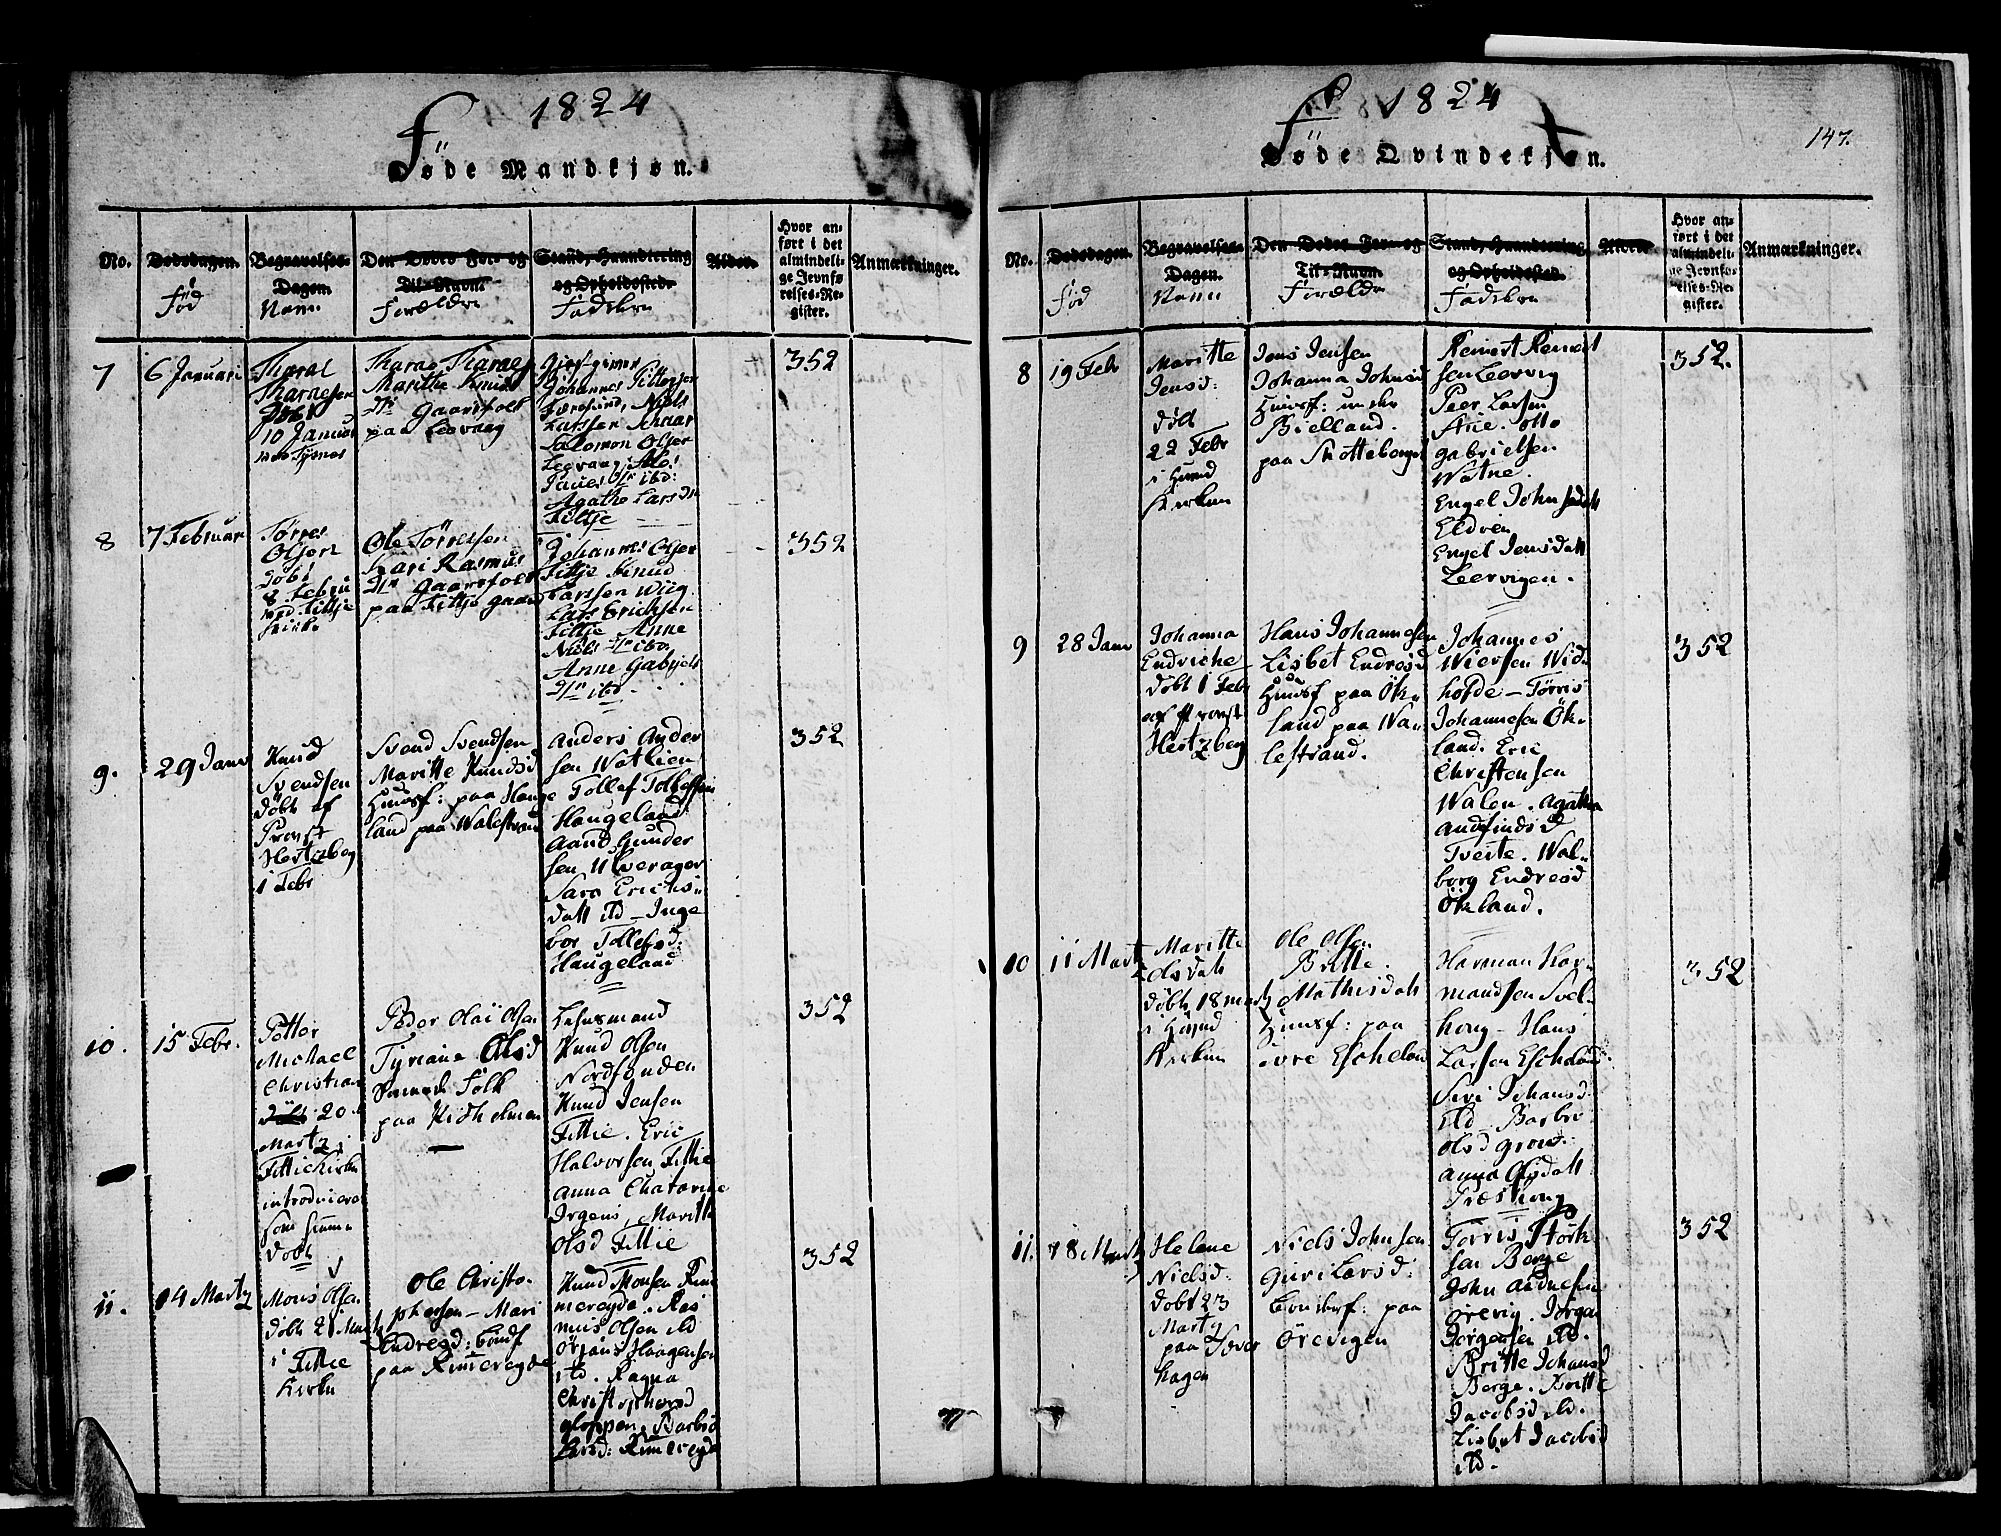 1824
Føde Mandkjøn.
No.
Dødsdagen.
Fød
Begravelses-
Dagen.
Navn
Den Dødes For- og
Til-Navn.
Forældre
Stand, Haandtering
og Opholdssted.
Fadderne
Alder.
Hvor an-
ført i det
almindeli-
ge Jevnfø-
relses-Re-
gister.
Anmærkninger.
7
6 Januari
Tharal
Tharalsen
døbt
10 Januar
Maritha Knuds
Gaardfolk
paa Leqvaag
Johannes
Færøsund, Niels
Larssen
Salomon Olsen
Leqvaag
Agatha Larsd
Fittje
352
8
7 Februar
Tørres
Olsen
døbt
8 Februar
Fittje
Kirke
Ole Tørressen
Kari Rasmus
Gaardfolk
paa Fittje gaard
Johannes Olsen
Fittje Knud
Larssen Wiig
Lars Erichsen
Fittje Anne
Niels ibd.
Anne Gabriels
ibd.
352
9.
29 Janv
Knud
Svendsen
døbt af
Provst
Hertzberg
1 Febr
Svend Svendsen
Maritte Knudsd
Huusf: paa Hauge
land paa Walestrand
Anders Ander
sen Watlien
Tollef Tollefsen
Haugeland
Aand Gunder
sen Ulverager
Sara Erichs
datt ibd - Inge
bor Tollefsd:
Haugeland
352
10.
15 Febr.
Petter
Michael
Christian
20
Martz i
Fittie Kirke
introduceret
som hiemme
døbt
Peder Olai Olsen
Tyriane Olsd
Folk
paa Kidholmen
Lehnsmand
Knud Olsen
Nordfonden
Knud Jensen
Fittie. Eric
Halvorsen Fittie
Anna Chatarine
Irgens, Maritte
Olsd Fittie
352
11.
14 Martz
Mons Olsen
døbt 21 Martz
i Fittie
Kirke
Ole Christo-
phersen - Mari
Endresd: Bondf
paa Rimereyde
Knud Monsen Rim
mereyde. Ras
mus Olsen ibd
Ørjans Haagensen
ibd. Ragna
Christophersd
Gloppen. Barbro
Rimereyde
352
1824
Føde Qvindekjøn.
147.
No.
Dødsdagen.
Fød
Begravelses-
Dagen.
Navn
Den Dødes For- og
Til-Navn.
Forældre
Stand, Haandtering
og Opholdssted.
Fadderne
Alder.
Hvor an-
ført i det
almindeli-
ge Jevnfø-
relses-Re-
gister.
Anmærkninger.
8
19 Feb
Maritte
Jensd:
død
22 Febr
i Huusd
Kirken
Jens Jensen
Johanna Johnsd
Huusf: under
Bielland.
paa Skotteberget
Reinert Reinert
sen Leervig
Peer Larsen
Arie. Otto
Gabrielsen
Watne.
Engel Johnsdatt
Eldøen
Engel Jensdatt
Leervigen.
352.
9
28 Janv
Johanna
Endriche
døbt 1 Feb
af Provst
Hertzberg
Hans Johannesen
Lisbet Endresd
Huusf paa Øk
land paa Wa
lestrand.
Johannes
Wiersen Wid
hofde - Tørris
Johannesen Øk
land. Eric
Christensen
Walen. Agatha
Andfindsd
Tveite. Wal
borg Endresd
Økland.
352
10
11 Martz
Maritte
Olsdatt
døbt 18 Martz
i Huusd
Kirken
Ole Olsen
Britte
Mathisdatt
Huusf: paa
øvre Eskeland
Harman Har
mandsen Svel
houg - Hans
Larsen Eskeland
Siri Johansd
ibd - Barbro
Olsd
Anna Olsdatt
352
11.
18 Martz
Helene
Nielsd:
døbt 23
Martz
paa Tover
hagen
Niels Johnsen
Guri Larsd:
Bondef: paa
Ørevigen
Torris Størk
sen Berge
John Aadnesen
Ørevig. Jørgen
Jørgensen ibd.
Britte Johansd
Berge. Britte
Jacobsd ibd.
Lisbet Jacobsd
ibd.
352